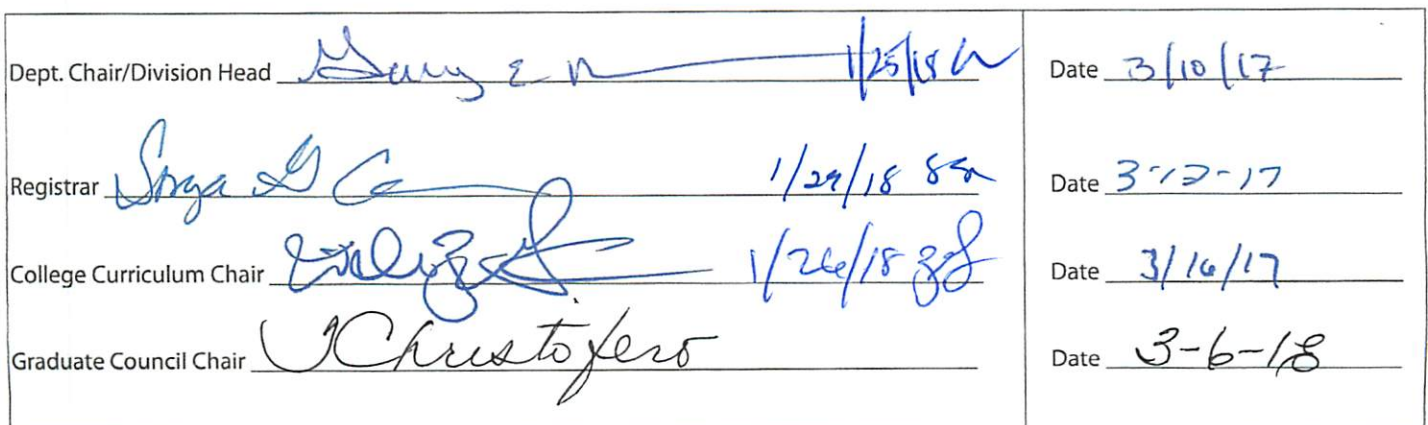 Dept. Chair/Division Head Gary E 1/25/18 Date 3/10/17
Registrar Sonya G 1/29/18 Date 3-13-17
College Curriculum Chair 1/26/18 Date 3/16/17
Graduate Council Chair TChristofero Date 3-6-18